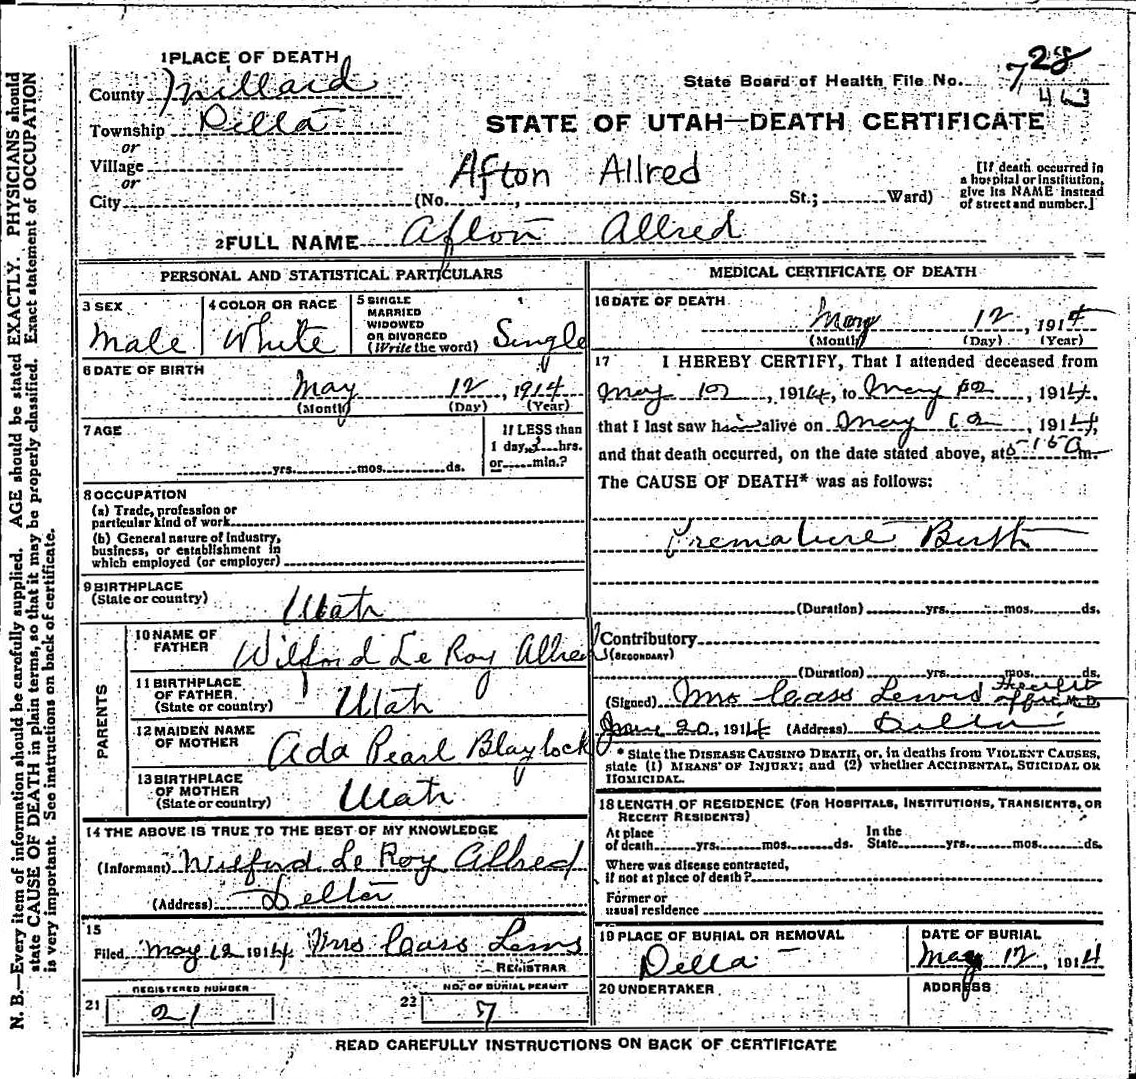 1 PLACE OF DEATH
County Millard
Township Delta
or
Village
or
City
State Board of Health File No. 728
STATE OF UTAH—DEATH CERTIFICATE
Afton Allred
(No. , St.; Ward)
[If death occurred in
a hospital or institution,
give its NAME instead
of street and number.]
2 FULL NAME Afton Allred
PERSONAL AND STATISTICAL PARTICULARS
3 SEX
Male
4 COLOR OR RACE
White
5 SINGLE
MARRIED
WIDOWED
OR DIVORCED
(Write the word) Single
6 DATE OF BIRTH
May 12, 1914
(Month) (Day) (Year)
7 AGE
yrs. mos. ds.
If LESS than
1 day, hrs.
or min.?
8 OCCUPATION
(a) Trade, profession or
particular kind of work
(b) General nature of industry,
business, or establishment in
which employed (or employer)
9 BIRTHPLACE
(State or country)
Utah
PARENTS
10 NAME OF
FATHER
Wilford Le Roy Allred
11 BIRTHPLACE
OF FATHER
(State or country)
Utah
12 MAIDEN NAME
OF MOTHER
Ada Pearl Blaylock
13 BIRTHPLACE
OF MOTHER
(State or country)
Utah
14 THE ABOVE IS TRUE TO THE BEST OF MY KNOWLEDGE
(Informant) Wilford Le Roy Allred
(Address) Delta
15
Filed May 12 1914 Mrs Cass Lewis
REGISTRAR
21
REGISTERED NUMBER
21
22
NO. OF BURIAL PERMIT
7
MEDICAL CERTIFICATE OF DEATH
16 DATE OF DEATH
May 12, 1914
(Month) (Day) (Year)
17 I HEREBY CERTIFY, That I attended deceased from
May 12, 1914, to May 12, 1914.
that I last saw him alive on May 12, 1914,
and that death occurred, on the date stated above, at m.
The CAUSE OF DEATH* was as follows:
Premature Birth
(Duration) yrs. mos. ds.
Contributory
(SECONDARY)
(Duration) yrs. mos. ds.
(Signed) Mrs Cass Lewis Health Officer M. D.
20, 1914 (Address) Delta
* State the DISEASE CAUSING DEATH, or, in deaths from VIOLENT CAUSES,
state (1) MEANS OF INJURY; and (2) whether ACCIDENTAL, SUICIDAL OR
HOMICIDAL.
18 LENGTH OF RESIDENCE (FOR HOSPITALS, INSTITUTIONS, TRANSIENTS, OR
RECENT RESIDENTS)
At place
of death yrs. mos. ds.
In the
State yrs. mos. ds.
Where was disease contracted,
if not at place of death?
Former or
usual residence
19 PLACE OF BURIAL OR REMOVAL
Delta
DATE OF BURIAL
May 12, 1914
20 UNDERTAKER
ADDRESS
READ CAREFULLY INSTRUCTIONS ON BACK OF CERTIFICATE
N. B.—Every item of information should be carefully supplied. AGE should be stated EXACTLY. PHYSICIANS should
state CAUSE OF DEATH in plain terms, so that it may be properly classified. Exact statement of OCCUPATION
is very important. See instructions on back of certificate.